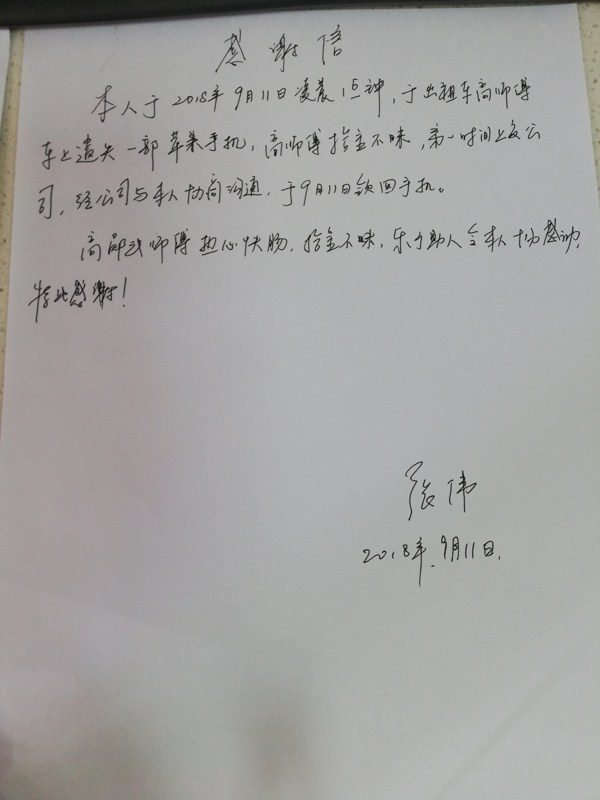 感谢信
本人于2018年9月11日凌晨1点钟，于出租车高师傅
车上遗失一部苹果手机，高师傅拾金不昧，第一时间上交公
司，经公司与本人协商沟通，于9月11日领回手机。
高师傅热心快肠，拾金不昧，乐于助人令本人十分感动，
特此感谢！
张伟
2018年.9月11日.